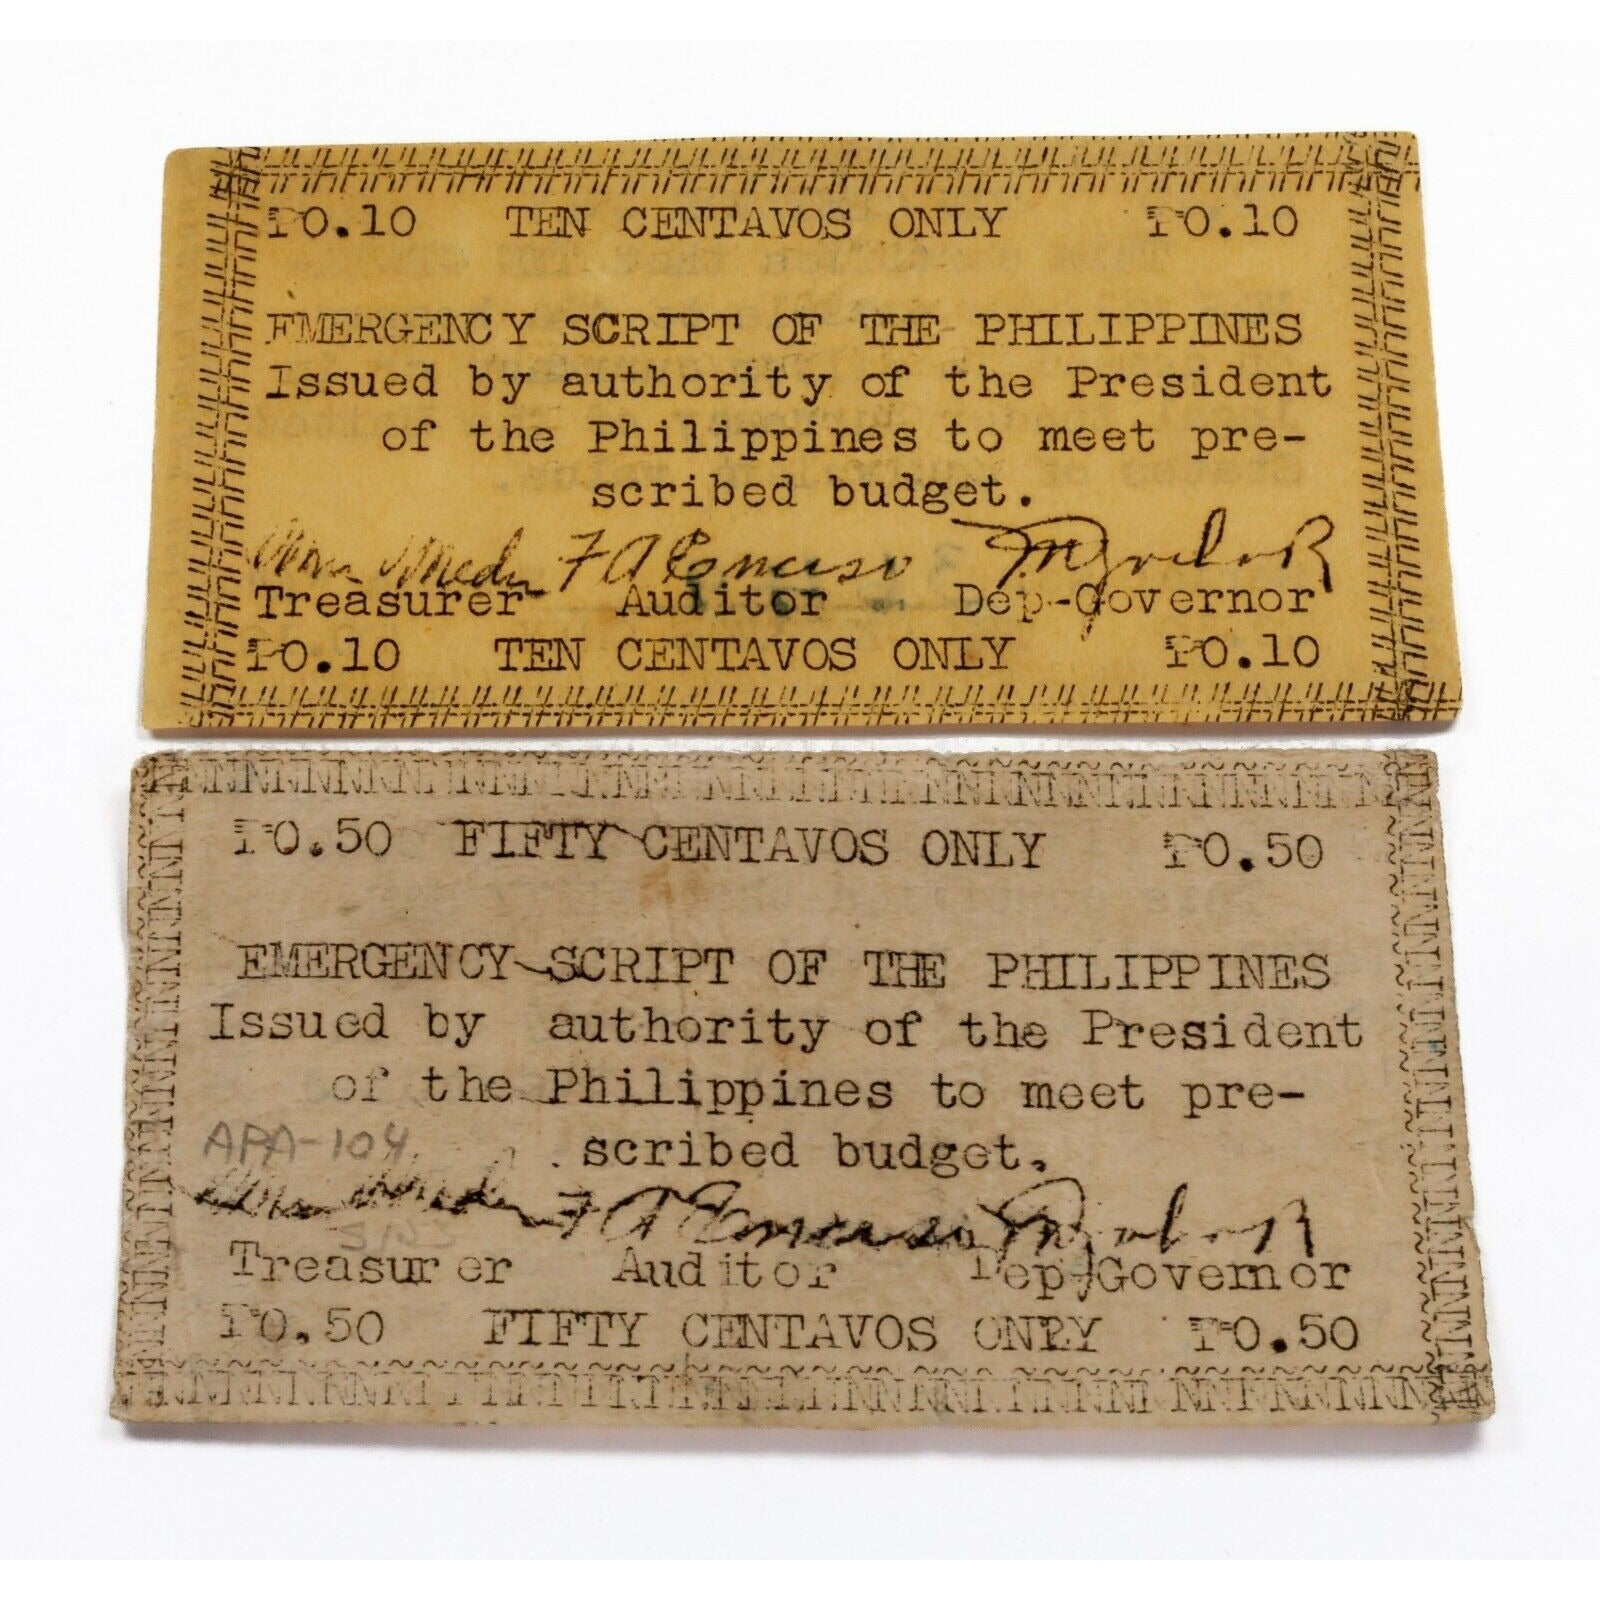 ₱0.10 TEN CENTAVOS ONLY ₱0.10
EMERGENCY SCRIPT OF THE PHILIPPINES
Issued by authority of the President
of the Philippines to meet pre-
scribed budget.
F A
Treasurer Auditor Dep-Governor
₱0.10 TEN CENTAVOS ONLY ₱0.10
₱0.50 FIFTY CENTAVOS ONLY ₱0.50
EMERGENCY SCRIPT OF THE PHILIPPINES
Issued by authority of the President
of the Philippines to meet pre-
APA-104
scribed budget.
F A
SN3
Treasurer Auditor Dep-Governor
₱0.50 FIFTY CENTAVOS ONLY ₱0.50